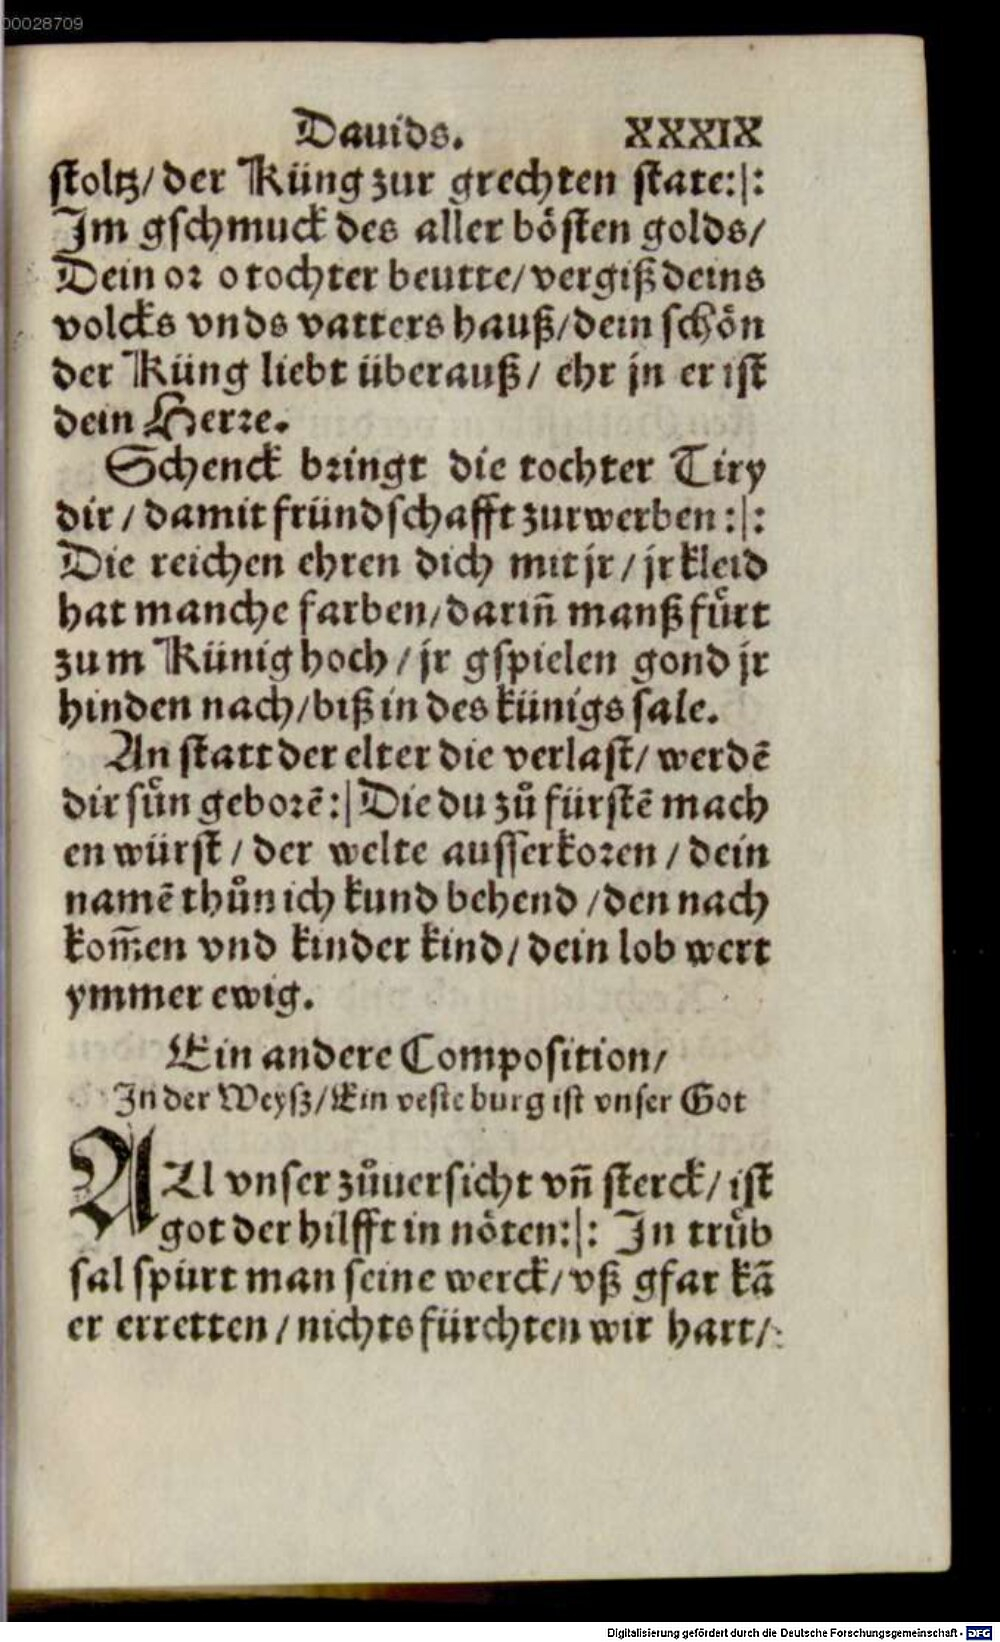 00028709
Dauids. XXXIX
stoltz/ der Küng zur grechten state:|:
Im gschmuck des aller bösten golds/
Dein or o tochter beutte/ vergiß deins
volcks vnds vatters hauß/ dein schön
der Küng liebt überauß/ ehr jn er ist
dein Herre.
Schenck bringt die tochter Tiry
dir/ damit fründschafft zurwerben:|:
Die reichen ehren dich mit jr/ jr kleid
hat manche farben/ dariñ manß fůrt
zum Künig hoch/ jr gspielen gond jr
hinden nach/ biß in des künigs sale.
An statt der elter die verlast/ werdẽ
dir sůn geborẽ:| Die du zů fürstẽ mach
en würst/ der welte ausserkoren/ dein
namẽ thůn ich kund behend/ den nach
kom̃en vnd kinder kind/ dein lob wert
ymmer ewig.
Ein andere Composition/
In der Weysz/ Ein veste burg ist vnser Got
All vnser zůuersicht vñ sterck/ ist
got der hilfft in nöten:|: In trůb
sal spürt man seine werck/ vß gfar kã
er erretten/ nichts fürchten wir hart/:
Digitalisierung gefördert durch die Deutsche Forschungsgemeinschaft - DFG